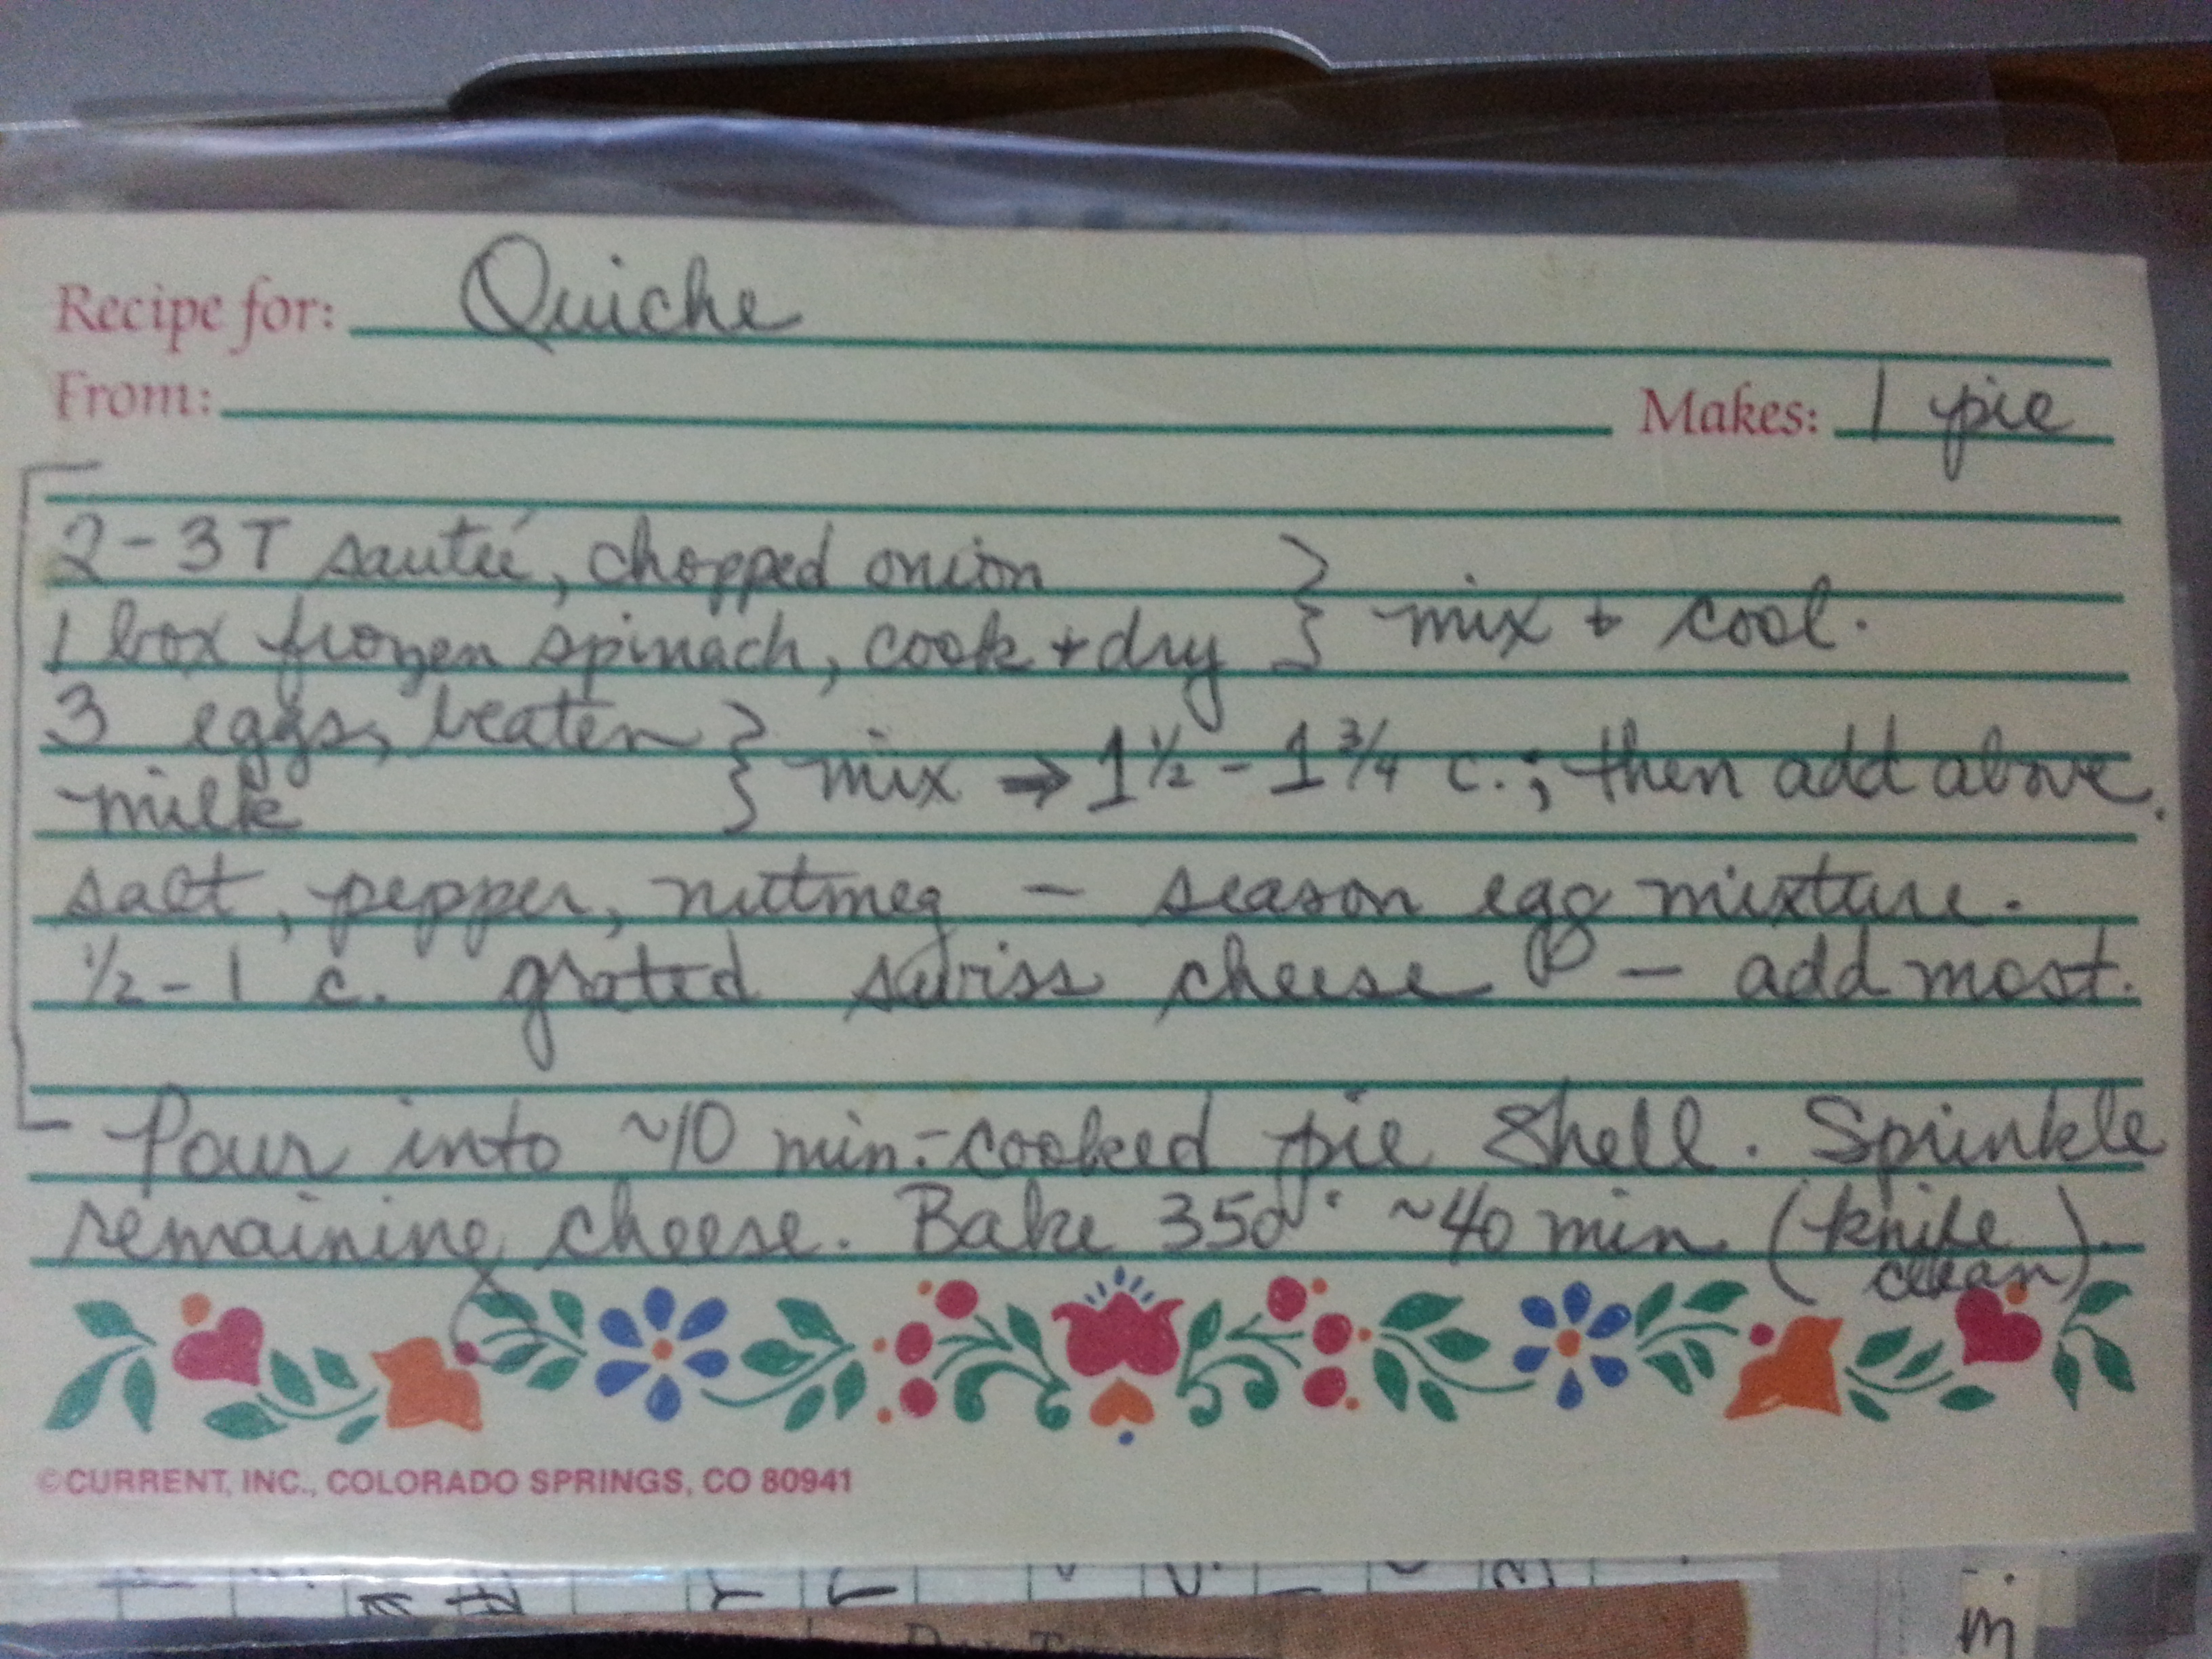 Recipe for: Quiche
From: Makes: 1 pie
2-3 T sauteé, chopped onion } mix + cool.
1 box frozen spinach, cook + dry
3 eggs, beaten } mix → 1 1/2 - 1 3/4 c.; then add above.
milk
salt, pepper, nutmeg - season egg mixture.
1/2 - 1 c. grated swiss cheese - add most.
Pour into ~10 min.-cooked pie shell. Sprinkle
remaining cheese. Bake 350° ~40 min. (knife
clean).
©CURRENT, INC., COLORADO SPRINGS, CO 80941